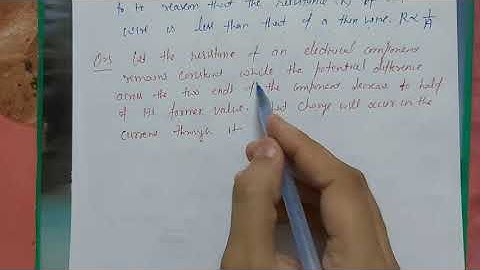 to to reason that the resistance R of
wire is less than that of a thin wire. R ∝ 1/A
Let the resistance of an electrical component
remains constant while the potential difference
across the two ends of the component decrease to half
of its former value. change will occur in the
current through it